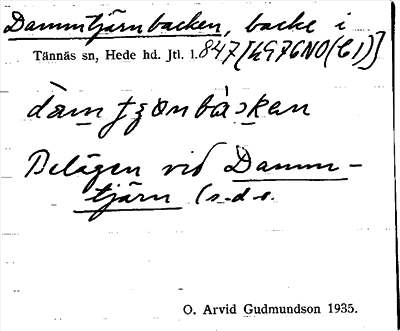 Dammtjärnbacken, backe i
Tännäs sn, Hede hd. Jtl. l. 847 [h976NO(C1)]
Belägen vid Damm-
tjärn (s.d.o.
O. Arvid Gudmundson 1935.